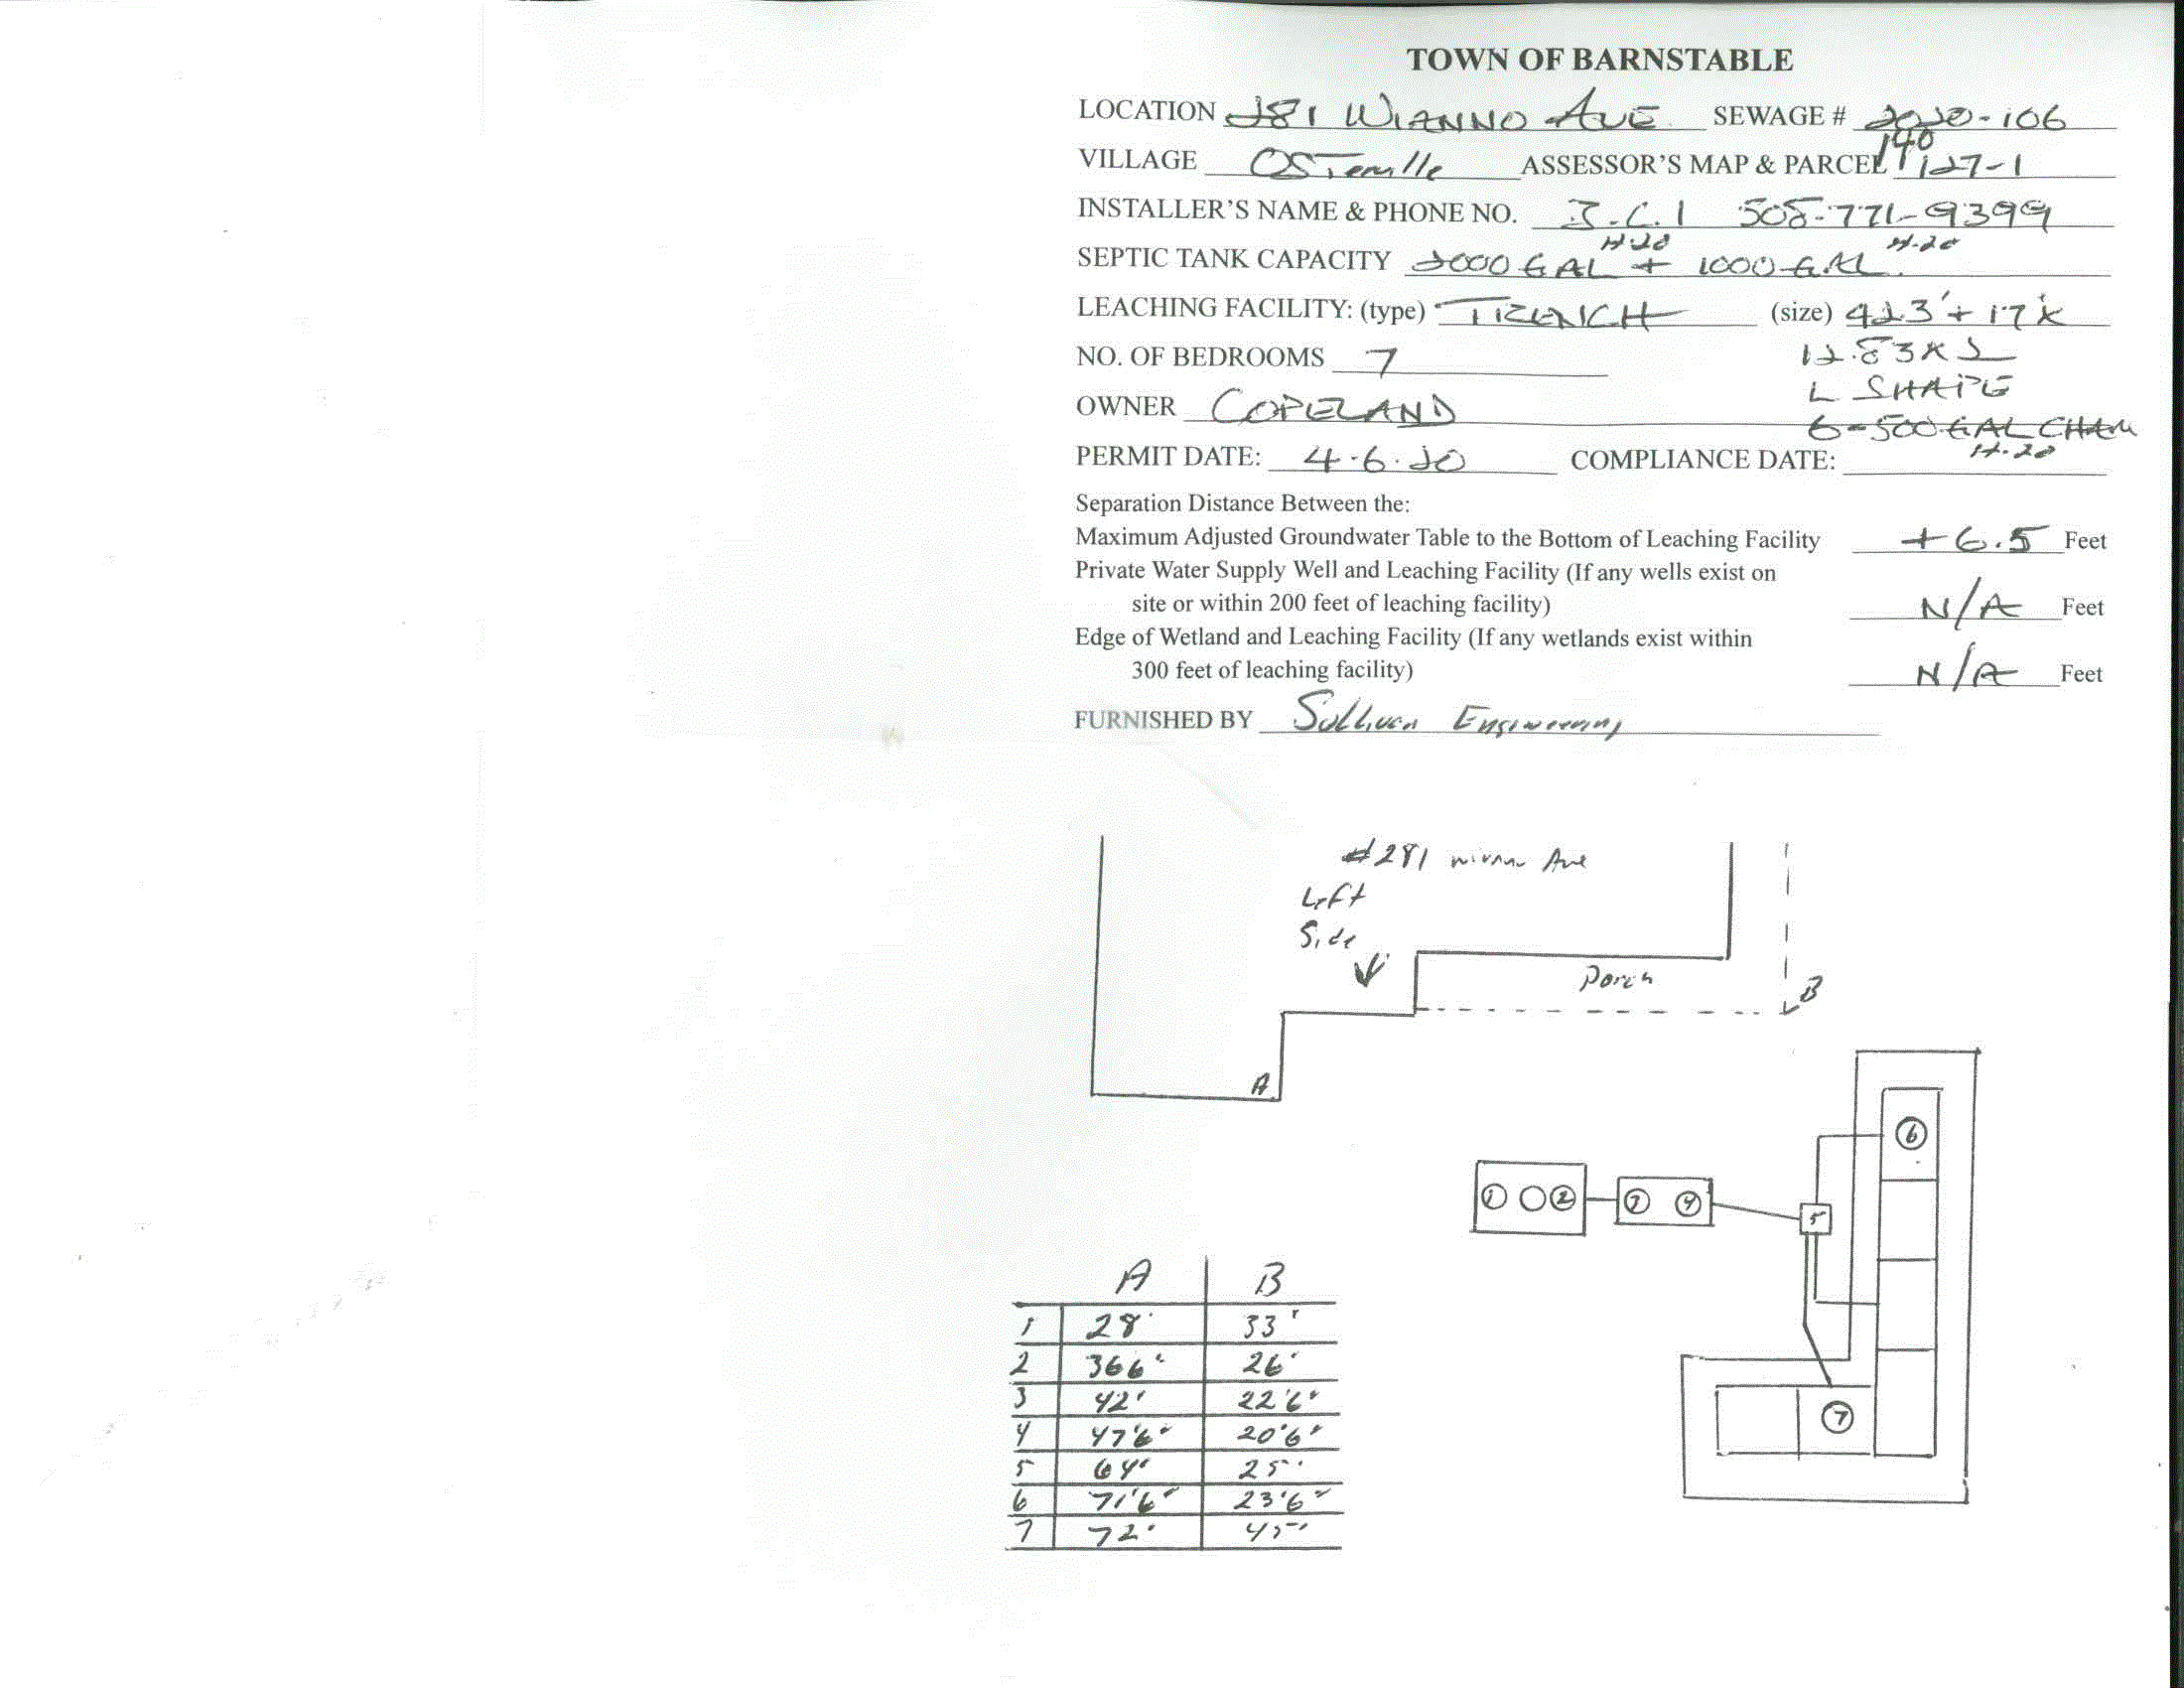 TOWN OF BARNSTABLE
LOCATION 281 WIANNO AVE SEWAGE # 2020-106
VILLAGE OSTerville ASSESSOR'S MAP & PARCEL 140 127-1
INSTALLER'S NAME & PHONE NO. J.C.I 508-771-9399
H-20 H-20
SEPTIC TANK CAPACITY 2000 GAL + 1000 GAL.
LEACHING FACILITY: (type) TRENCH (size) 42.3' + 17'x
NO. OF BEDROOMS 7 12.83x2
L SHAPE
OWNER COPELAND
6-500 GAL CHAM
H-20
PERMIT DATE: 4.6.20 COMPLIANCE DATE:
Separation Distance Between the:
Maximum Adjusted Groundwater Table to the Bottom of Leaching Facility +6.5 Feet
Private Water Supply Well and Leaching Facility (If any wells exist on
site or within 200 feet of leaching facility) N/A Feet
Edge of Wetland and Leaching Facility (If any wetlands exist within
300 feet of leaching facility) N/A Feet
FURNISHED BY Sullivan Engineering
#281 Wianno Ave
Left
Side
Porch
B
A
6
1 2 3 4
5
7
A B
1 28' 33'
2 36'6" 26'
3 42' 22'6"
4 47'6" 20'6"
5 64' 25'
6 71'6" 23'6"
7 72' 45'